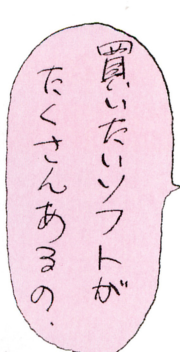 買いたいソフトが
たくさんあるの.